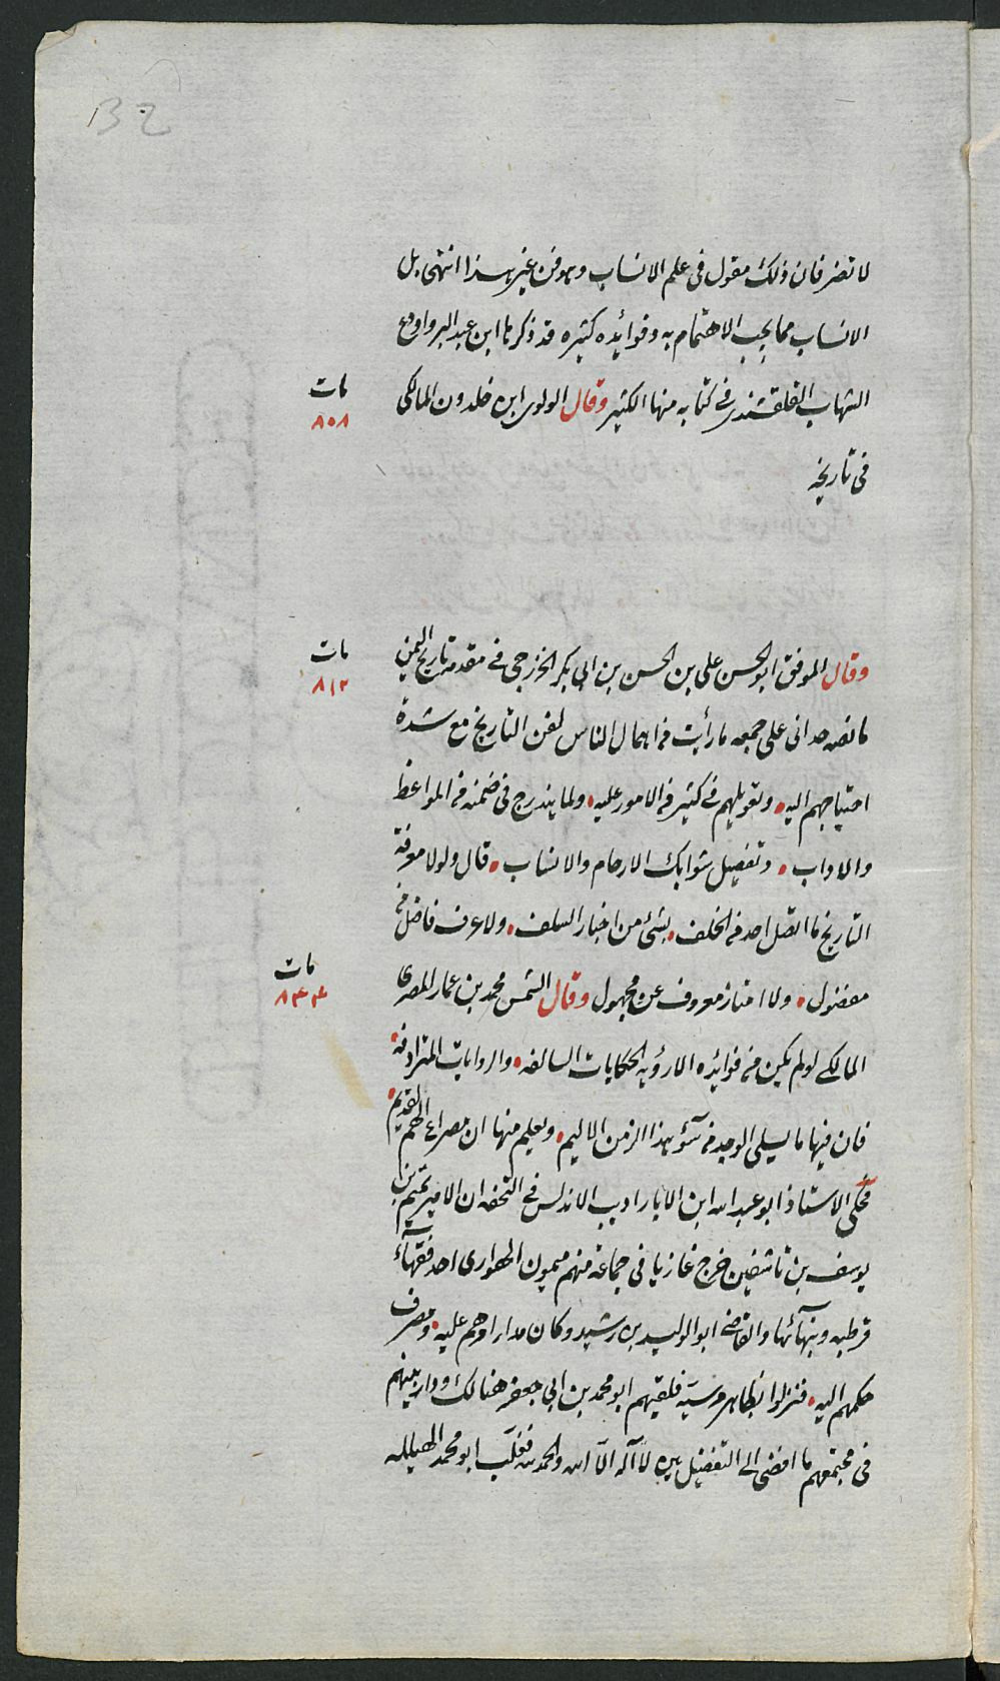 32
لا تضر فان ذلك مقول فى علم الانساب وهو فن غير هذا انتهى بل
الانساب مما يجب الاهتمام به وفوائده كثيره قد ذكرها ابن عبد البر واودع
الشهاب القلقشندى فى كتابه منها الكثير وقال الولوى ابن خلدون المالكى
مات
٨٠٨
فى تاريخه
وقال الموفق ابو الحسن على بن الحسن بن ابى بكر الخزرجى فى مقدمة تاريخ اليمن
مات
٨١٢
ما نصه حدانى على جمعه ما رأيت من اهمال الناس لفن التاريخ مع شدة
احتياجهم اليه وتعويلهم فى كثير من الامور عليه ولما يندرج فى ضمنه من المواعظ
والاداب وتفصيل شوابك الارحام والانساب قال ولولا معرفة
التاريخ ما اتصل احد من الخلف بشئ من اخبار السلف ولا عرف فاضل من
مفضول ولا امتاز معروف عن مجهول وقال الشمس محمد بن عمار المصرى
مات
٨٤٤
المالكى لو لم يكن من فوائده الا رؤية الحكايات السالفه والروايات المترادفه
فان فيها ما يسلى الوجد من سوء هذا الزمن الاليم ويعلم منها ان مصراع الهم القديم
فحكى الاستاذ ابو عبد الله ابن الابار اديب الاندلس فى التحفه ان الامير تميم بن
يوسف بن تاشفين خرج غازيا فى جماعة منهم ميمون الهوارى احد فقهاء
قرطبه ونبهائها والقاضى ابو الوليد بن رشيد وكان مدار امرهم عليه ومصرف
حكمهم اليه فنزلوا بظاهر مرسيه فلقيهم ابو محمد بن ابى جعفر هنالك ودار بينهم
فى مجتمعهم ما افضى الى التفضيل بين لا اله الا الله والحمد لله فغلب ابو محمد الهيلله